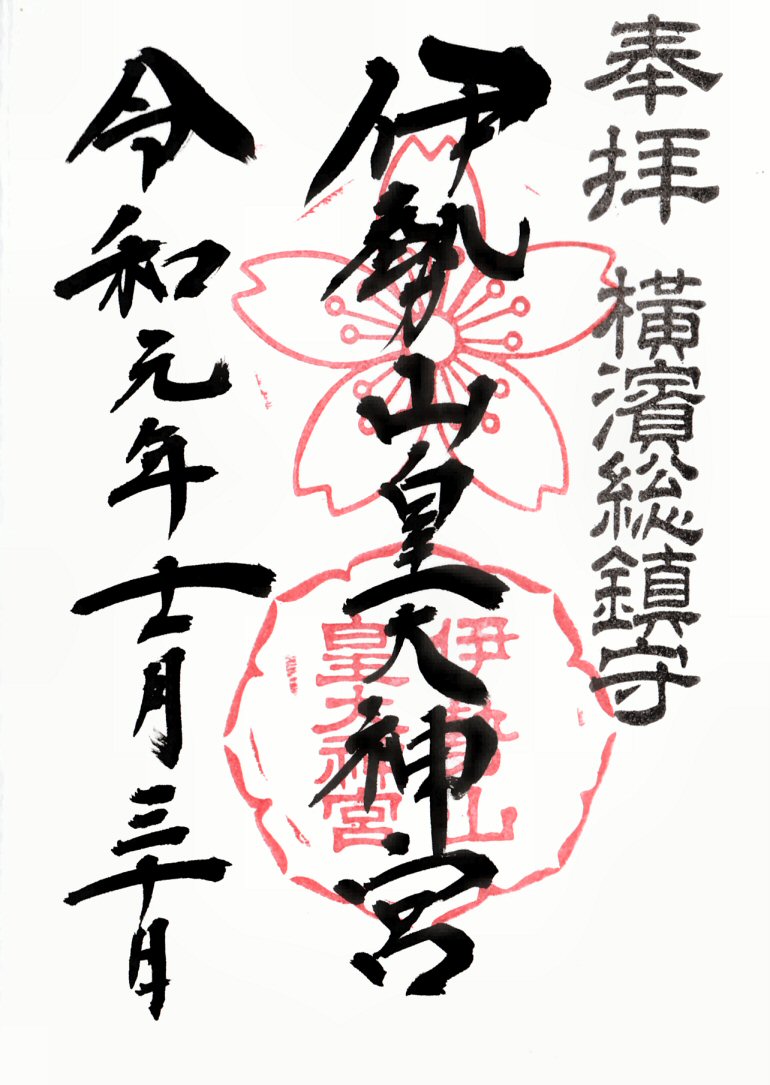 奉拝 横濱総鎮守
伊勢山皇大神宮
令和元年十一月三十日
伊勢山
皇大神宮